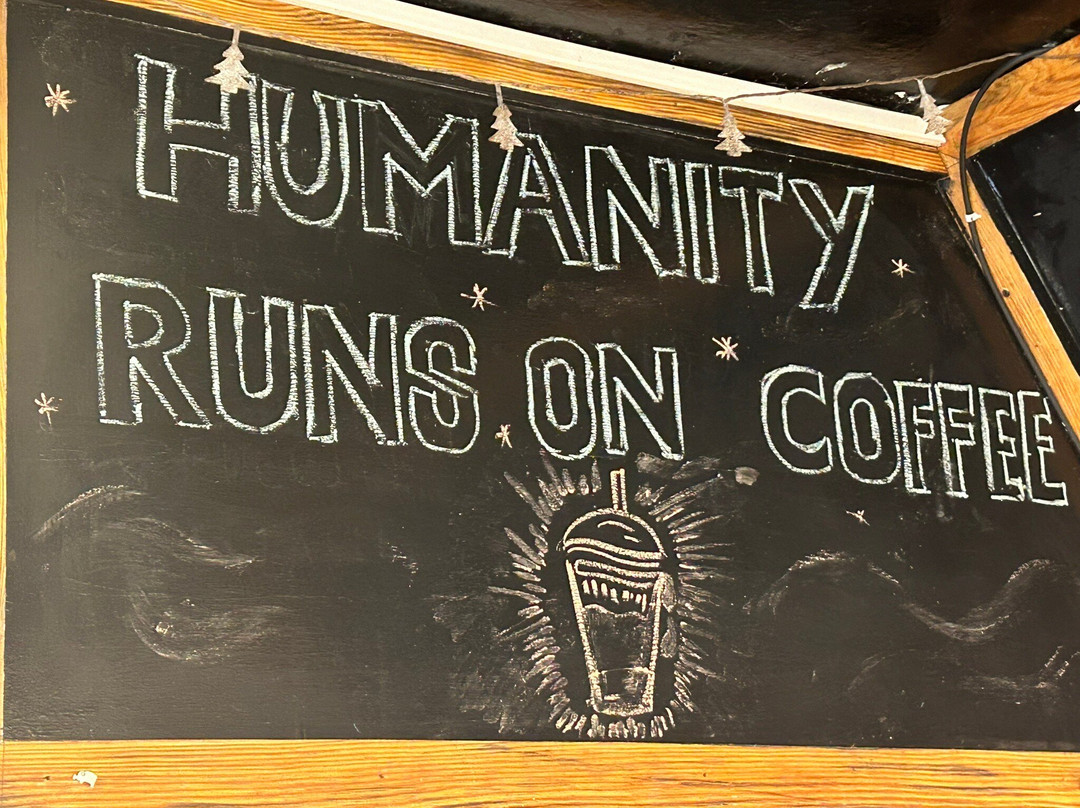 HUMANITY
RUNS ON COFFEE